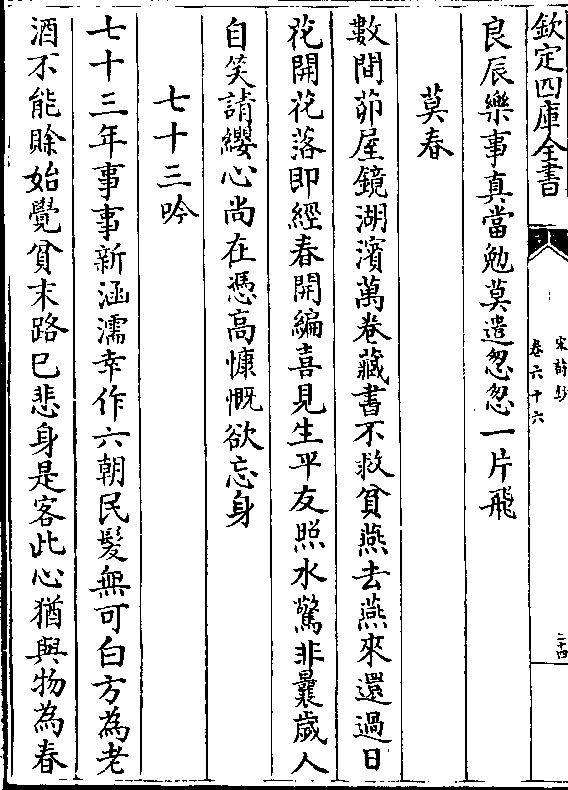 欽定四庫全書
宋詩鈔
卷六十六
二十四
良辰樂事真當勉莫遣怱怱一片飛
莫春
數間茆屋鏡湖濱萬卷藏書不救貧燕去燕來還過日
花開花落即經春開編喜見生平友照水驚非曩歲人
自笑請纓心尚在憑高慷慨欲忘身
七十三吟
七十三年事事新涵濡幸作六朝民髮無可白方為老
酒不能賖始覺貧末路已悲身是客此心猶與物為春